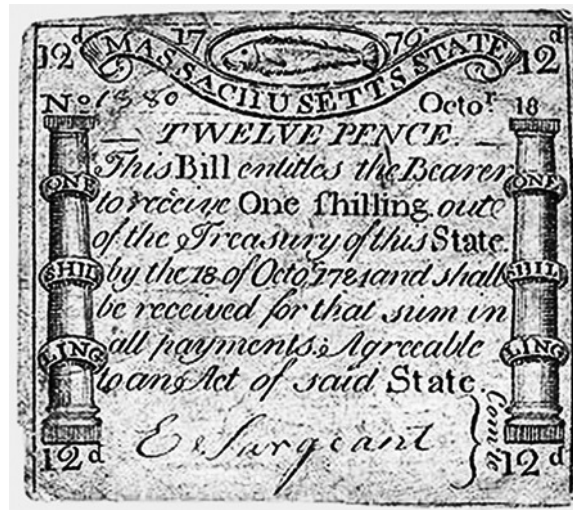 12ᵈ 17 76 12ᵈ
MASSACHUSETTS STATE
Nº 1380 Octoʳ 18
— TWELVE PENCE. —
This Bill entitles the Bearer
to receive One ſhilling oute
of the Treasury of this State
by the 18 of Octo, 1784 and shall
be received for that sum in
all payments, Agreeable
to an Act of said State.
ONE SHIL LING
ONE SHIL LING
E Surgeant
Comᵗᵉ
12ᵈ 12ᵈ